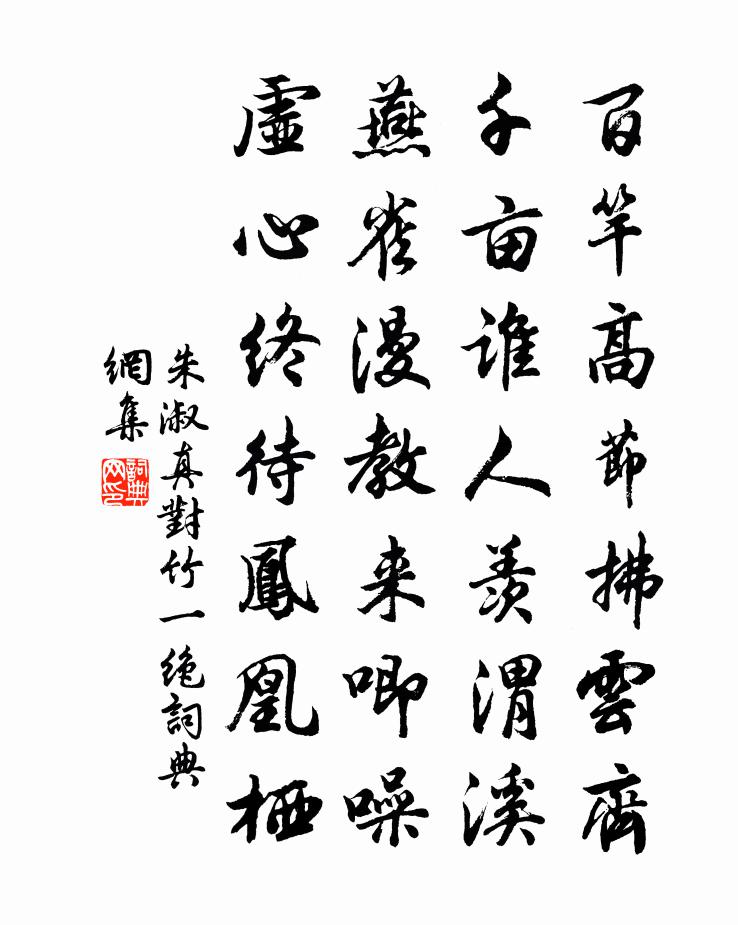 百竿高節拂雲齊
千亩誰人羨渭溪
燕雀漫教来唧噪
虛心終待鳳凰栖
朱淑真對竹一絶詞典
網集
詞典网印